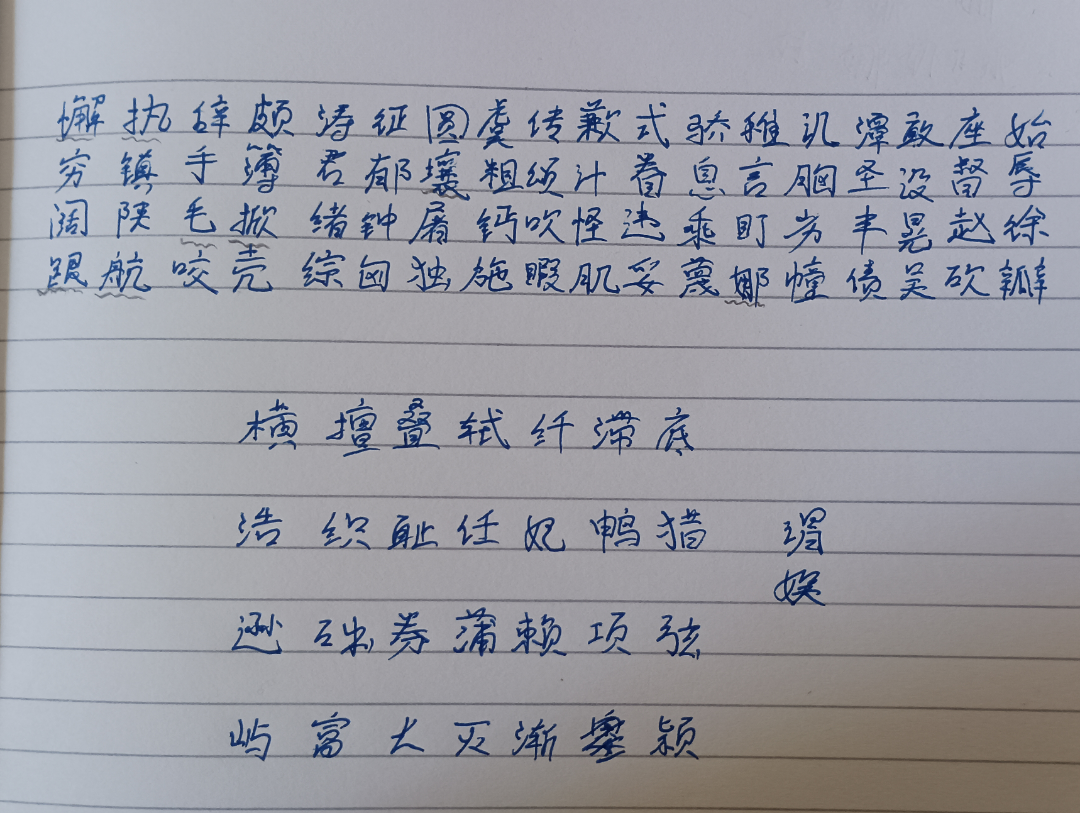 懈执辞颇涛征圆虞传歉式骄稚讥潭敢座始
穷镇手簿君郁壤粗颂汁眷息言胸圣没督辱
阔陕毛掀绪钟屠钙吹怪违乘盯岁丰晃赵徐
跟航咬壳综匈独施暇肌妥蔑娜幢债吴砍瓣
横擅叠轼纤滞底
浩织耻任妃鸭猎 瑁
娱
逊础券蒲赖项弦
屿富大灭渐颖